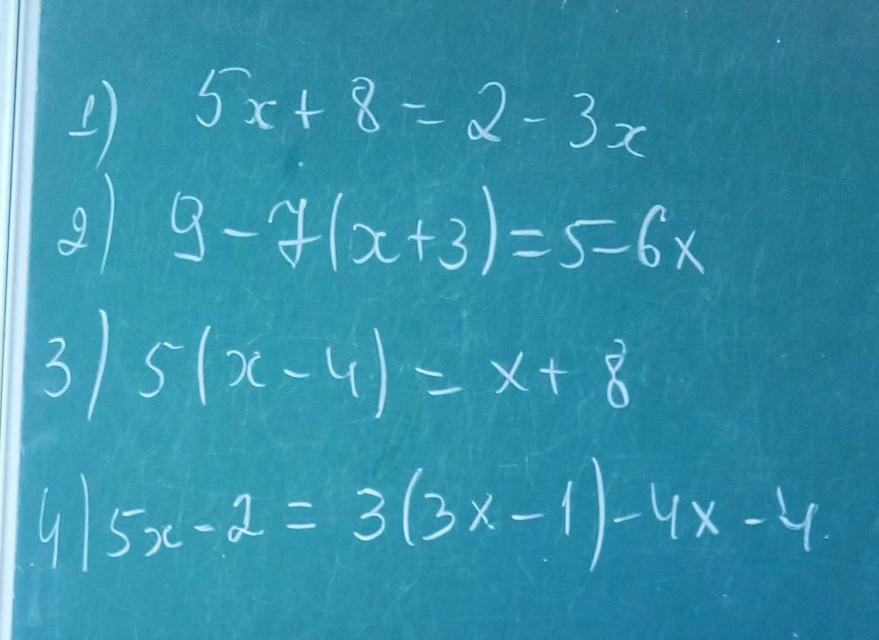 1) 5x + 8 = 2 - 3x
2) 9 - 7(x+3) = 5 - 6x
3) 5(x - 4) = x + 8
4) 5x - 2 = 3(3x - 1) - 4x - 4